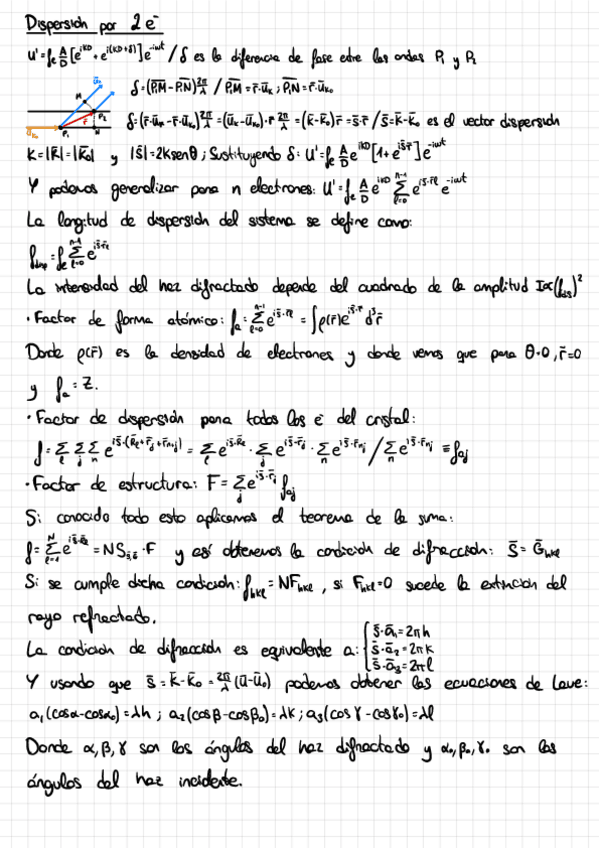 Dispersión por 2 e⁻
U' = f_e A/D [e^{iKD} + e^{i(KD+δ)}] e^{-iωt} / δ es la diferencia de fase entre las ondas P₁ y P₂
δ = (P₂M - P₁N) 2π/λ / P₂M = r̄·ū_k ; P₁N = r̄·ū_{k₀}
ū_k M P₂ r̄ ū_{k₀} P₁ N
δ = (r̄·ū_k - r̄·ū_{k₀}) 2π/λ = (ū_k - ū_{k₀})·r̄ 2π/λ = (k̄ - k̄₀) r̄ = s̄·r̄ / s̄ = k̄ - k̄₀ es el vector dispersión
K = |k̄| = |k̄₀| y |s̄| = 2K senθ ; Sustituyendo δ: U' = f_e A/D e^{iKD} [1 + e^{is̄r̄}] e^{-iωt}
Y podemos generalizar para n electrones: U' = f_e A/D e^{iKD} Σ_{l=0}^{n-1} e^{is̄·r̄l} e^{-iωt}
La longitud de dispersión del sistema se define como:
f_{disp} = f_e Σ_{l=0}^{n-1} e^{is̄·r̄l}
La intensidad del haz difractado depende del cuadrado de la amplitud I∝(f_{dis})²
· Factor de forma atómico: f_a = Σ_{l=0}^{n-1} e^{is̄·r̄l} = ∫ρ(r̄)e^{is̄·r̄} d³r̄
Donde ρ(r̄) es la densidad de electrones y donde vemos que para θ=0, r̄=0
y f_a = Z.
· Factor de dispersión para todos los e⁻ del cristal:
f = Σ_l Σ_j Σ_n e^{is̄·(R̄l + r̄j + r̄nj)} = Σ_l e^{is̄·R̄l} · Σ_j e^{is̄·r̄j} · Σ_n e^{is̄·r̄nj} / Σ_n e^{is̄·r̄nj} ≡ f_{aj}
· Factor de estructura: F = Σ_j e^{is̄·r̄j} f_{aj}
Si conocido todo esto aplicamos el teorema de la suma:
f = Σ_{l=1}^{N} e^{is̄·R̄l} = N S_{s̄,G̅} · F y así obtenemos la condición de difracción: s̄ = G̅_{hkl}
Si se cumple dicha condición: f_{hkl} = N F_{hkl}, si F_{hkl} = 0 sucede la extinción del
rayo refractado.
La condición de difracción es equivalente a: { s̄·ā₁ = 2πh
s̄·ā₂ = 2πk
s̄·ā₃ = 2πl
Y usando que s̄ = k̄ - k̄₀ = 2π/λ (ū - ū₀) podemos obtener las ecuaciones de Laue:
a₁(cosα - cosα₀) = λh ; a₂(cosβ - cosβ₀) = λk ; a₃(cosγ - cosγ₀) = λl
Donde α, β, γ son los ángulos del haz difractado y α₀, β₀, γ₀ son los
ángulos del haz incidente.